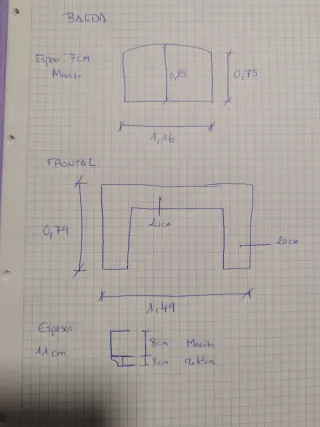 BALDA
Espesor 7cm
Macizo
0,85
0,75
1,16
FRONTAL
0,79
20cm
20cm
1,49
Espesor
11cm
8cm Macizo
3cm